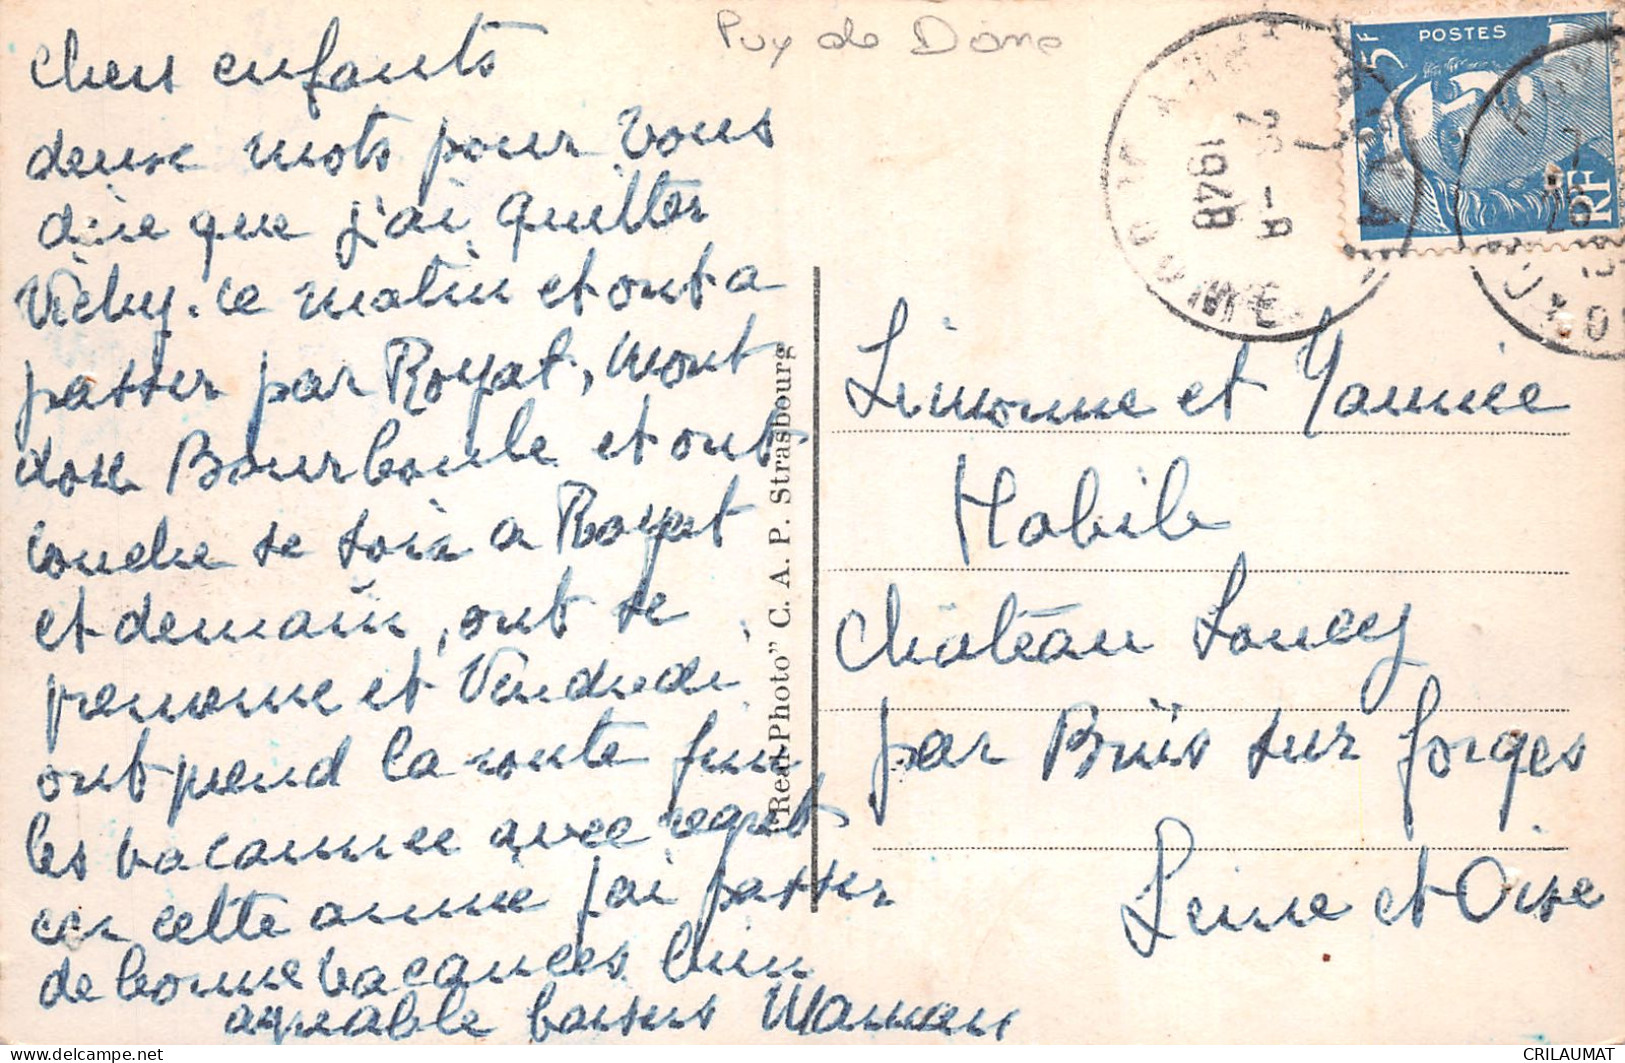 Puy de Dome
Chers enfants
deuse mots pour vous
dire que j'ai quitter
Vichy. ce matin et ont a
passer par Royat, Mont
dore Bourboule et ont
couche se soir a Royat
et demain, ont se
promome et Vendredi
ont prend la route fini
les vacannee avec regret
car cette annee j'ai passer
de bonne vacances bien
agreable baisers Maman
"Real-Photo" C. A. P. Strasbourg
POSTES
5F
RF
1948
Simonne et Yannice
Habib
Château Soucy
par Briis sur forges
Seine et Oise
delcampe.net
CRILAUMAT